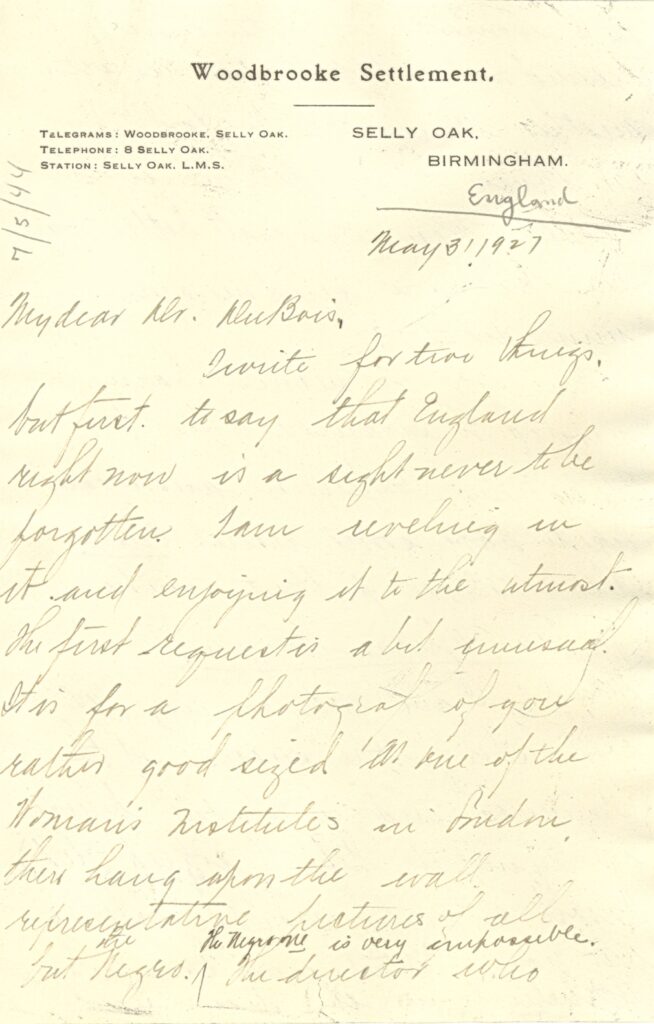 Woodbrooke Settlement.
TELEGRAMS: WOODBROOKE, SELLY OAK.
TELEPHONE: 8 SELLY OAK.
STATION: SELLY OAK, L.M.S.
SELLY OAK,
BIRMINGHAM.
England
7/5/44
May 31, 1927
My dear Dr. DuBois,
I write for two things,
but first. to say that England
right now is a sight never to be
forgotten. I am reveling in
it and enjoying it to the utmost.
The first request is a bit unusual.
It is for a photograf of you
rather good sized. At one of the
Woman's Institutes in London,
there hang upon the wall
representative pictures of all
but the Negro. The Negro one is very impossible.
The director who